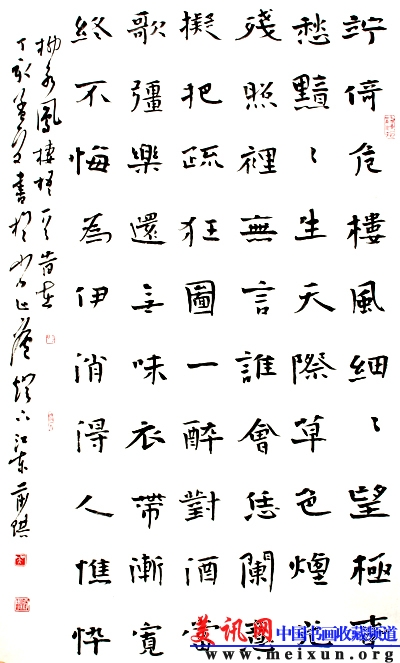 竚倚危樓風細〻望極春
愁黯〻生天際草色煙光
殘照裡無言誰會恁闌意
擬把疏狂圖一醉對酒當
歌彊樂還无味衣帶漸寬
終不悔為伊消得人憔悴
柳永鳳棲梧
丁亥 書於 燈下江東
美讯网 中国书画收藏频道
www.meixun.org